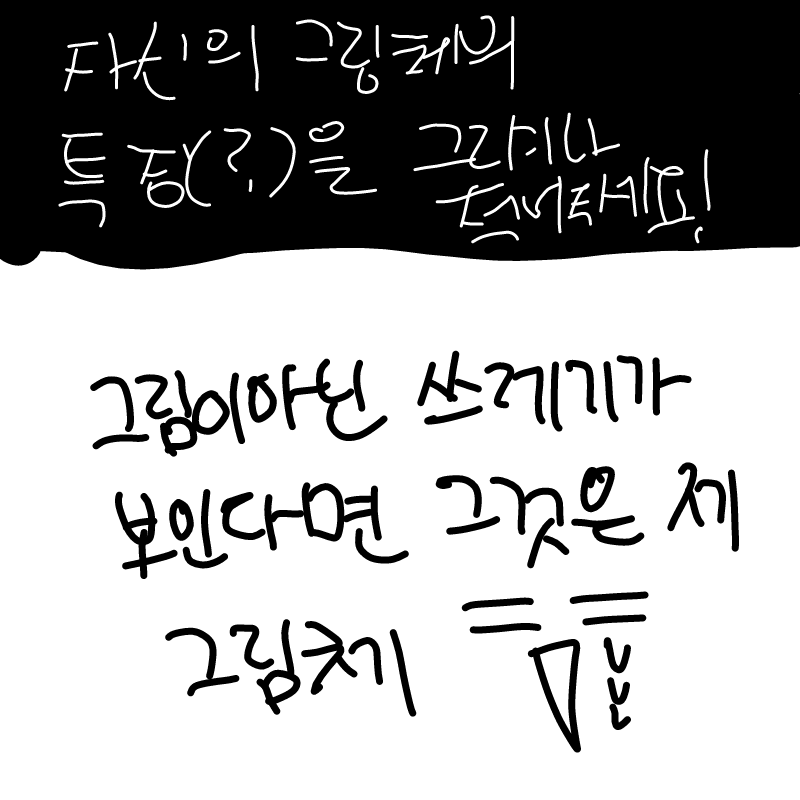 자신의 그림체의
특징(?)을 그리시거나
적어주세요!
그림이아닌 쓰레기가
보인다면 그것은 제
그림체